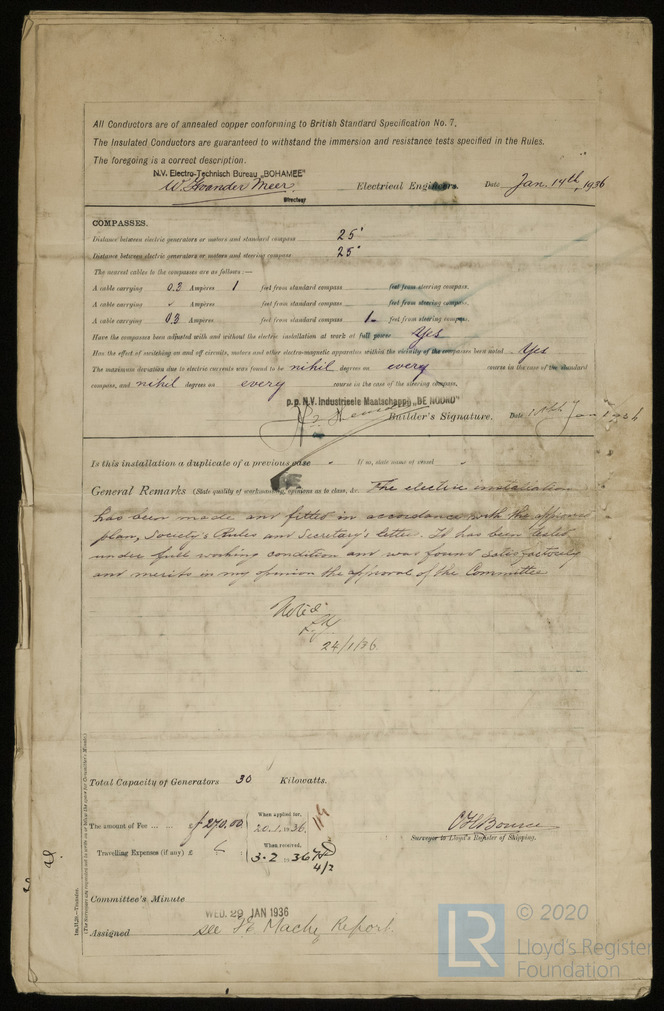 All Conductors are of annealed copper conforming to British Standard Specification No. 7.
The Insulated Conductors are guaranteed to withstand the immersion and resistance tests specified in the Rules.
The foregoing is a correct description.
N.V. Electro-Technisch Bureau „BOHAMEE"
W. van der Meer Electrical Engineers. Date Jan. 14th, 1936
Directeur
COMPASSES.
Distance between electric generators or motors and standard compass 25'
Distance between electric generators or motors and steering compass 25'
The nearest cables to the compasses are as follows:—
A cable carrying 0.3 Ampères 1 feet from standard compass feet from steering compass.
A cable carrying Ampères feet from standard compass feet from steering compass.
A cable carrying 0.3 Ampères feet from standard compass 1 feet from steering compass.
Have the compasses been adjusted with and without the electric installation at work at full power Yes
Has the effect of switching on and off circuits, motors and other electro-magnetic apparatus within the vicinity of the compasses been noted Yes
The maximum deviation due to electric currents was found to be nihil degrees on every course in the case of the standard
compass, and nihil degrees on every course in the case of the steering compass.
p.p. N.V. Industrieele Maatschappij „DE NOORD"
Builder's Signature. Date
Is this installation a duplicate of a previous case If so, state name of vessel
General Remarks (State quality of workmanship, opinions as to class, &c. The electric installation
has been made and fitted in accordance with the approved
plan, Society's Rules and Secretary's letter. It has been tested
under full working condition and was found satisfactorily
and merits in my opinion the approval of the Committee
Noted
24/1/36.
Total Capacity of Generators 30 Kilowatts.
The amount of Fee ... ... f 270.00
When applied for,
20.1.1936.
Travelling Expenses (if any) £
When received,
3.2.1936
4/2
Surveyor to Lloyd's Register of Shipping.
Committee's Minute
WED. 29 JAN 1936
Assigned see F.E. Machy Report.
© 2020
LR
Lloyd's Register
Foundation